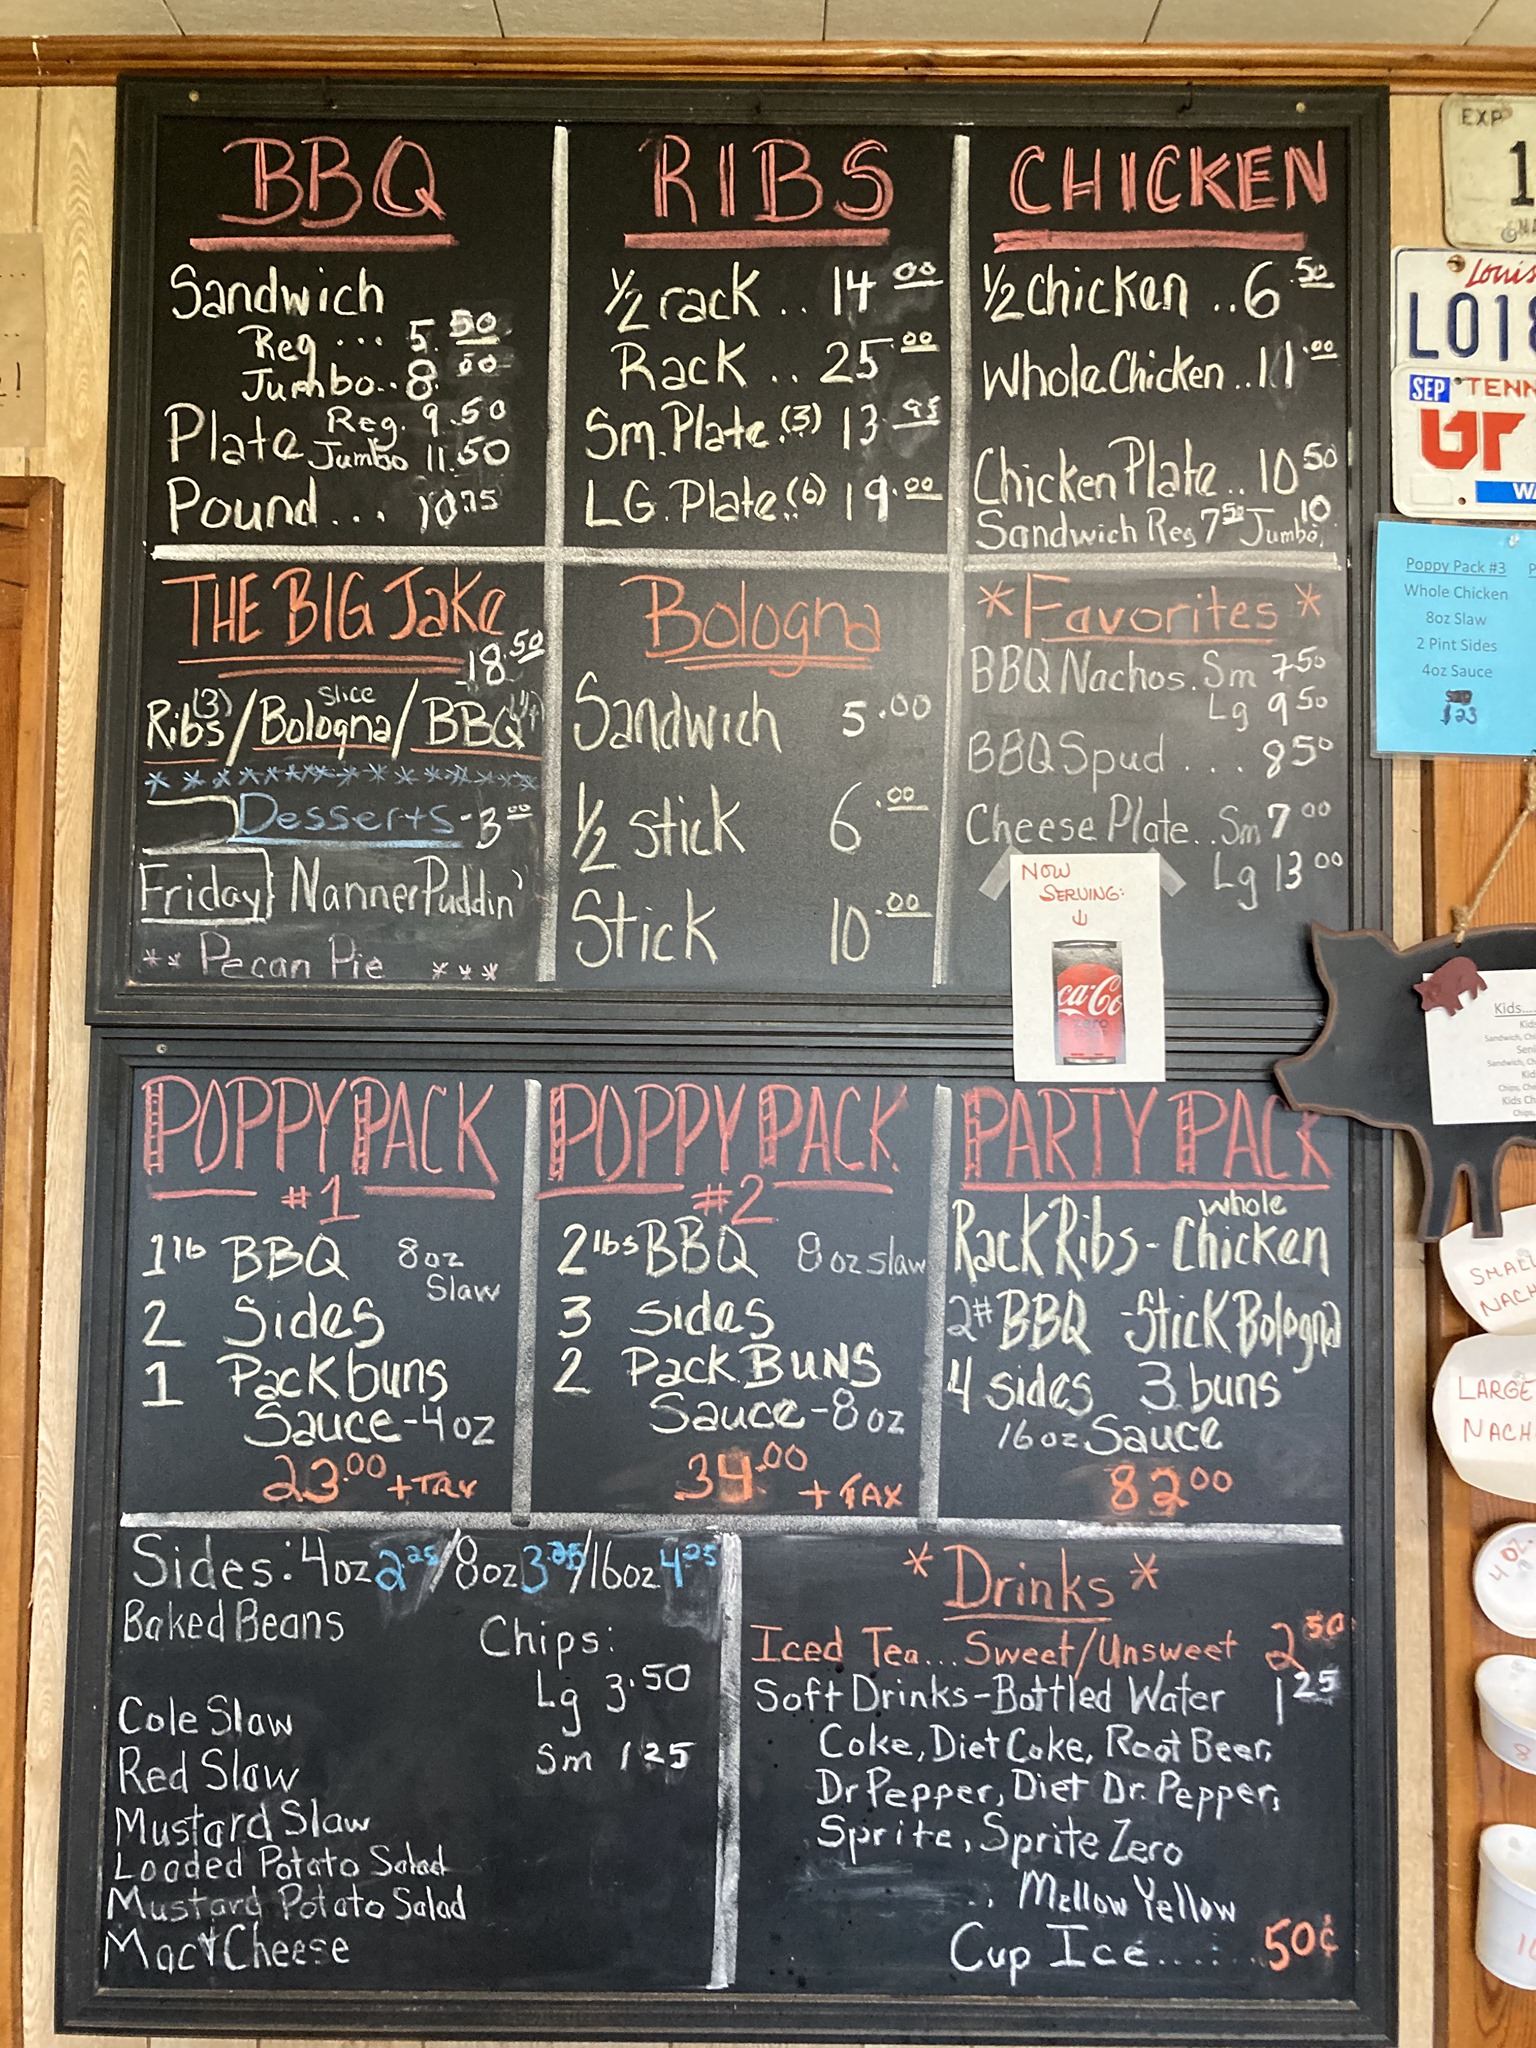 BBQ
Sandwich
Reg ... 5.50
Jumbo.. 8.00
Plate Reg. 9.50
Jumbo 11.50
Pound... 10.75
RIBS
1/2 rack .. 14.00
Rack .. 25.00
Sm. Plate.(3) 13.95
LG. Plate.(6) 19.00
CHICKEN
1/2 chicken .. 6.50
Whole Chicken .. 11.00
Chicken Plate .. 10 50
Sandwich Reg 7 50 Jumbo 10
THE BIG Jake
18.50
Ribs (3) / Bologna slice / BBQ
Desserts - 3 00
Friday} Nanner Puddin'
** Pecan Pie ***
Bologna
Sandwich 5.00
1/2 stick 6.00
Stick 10.00
* Favorites *
BBQ Nachos. Sm 7 50
Lg 9 50
BBQ Spud ... 8 50
Cheese Plate.. Sm 7 00
Lg 13 00
NOW
SERVING:
ca-Co
zero
POPPY PACK
#1
1 lb BBQ 8oz
Slaw
2 Sides
1 Pack buns
Sauce-4oz
23.00 + TAX
POPPY PACK
#2
2 lbs BBQ 8oz slaw
3 Sides
2 Pack BUNS
Sauce-8oz
34.00 + TAX
PARTY PACK
Rack Ribs - whole Chicken
2# BBQ - Stick Bologna
4 sides 3 buns
16oz Sauce
82 00
Sides: 4oz 2.25 / 8oz 3.25 / 16oz 4 25
Baked Beans
Cole Slaw
Red Slaw
Mustard Slaw
Loaded Potato Salad
Mustard Potato Salad
Mac & Cheese
Chips:
Lg 3.50
Sm 1 25
* Drinks *
Iced Tea... Sweet/Unsweet 2 50
Soft Drinks-Bottled Water 1 25
Coke, Diet Coke, Root Beer,
Dr Pepper, Diet Dr. Pepper,
Sprite, Sprite Zero
Mellow Yellow
Cup Ice........ 50¢
EXP
1
Louis
L018
SEP TENN
UT
Poppy Pack #3
Whole Chicken
8oz Slaw
2 Pint Sides
4oz Sauce
$23
Kids...
Kid
Sandwich, Ch
Seni
Sandwich, Ch
Kid
Chips, Ch
Kids Ch
Chips,
SMALL
NACH
LARGE
NACH
4 oz.
8